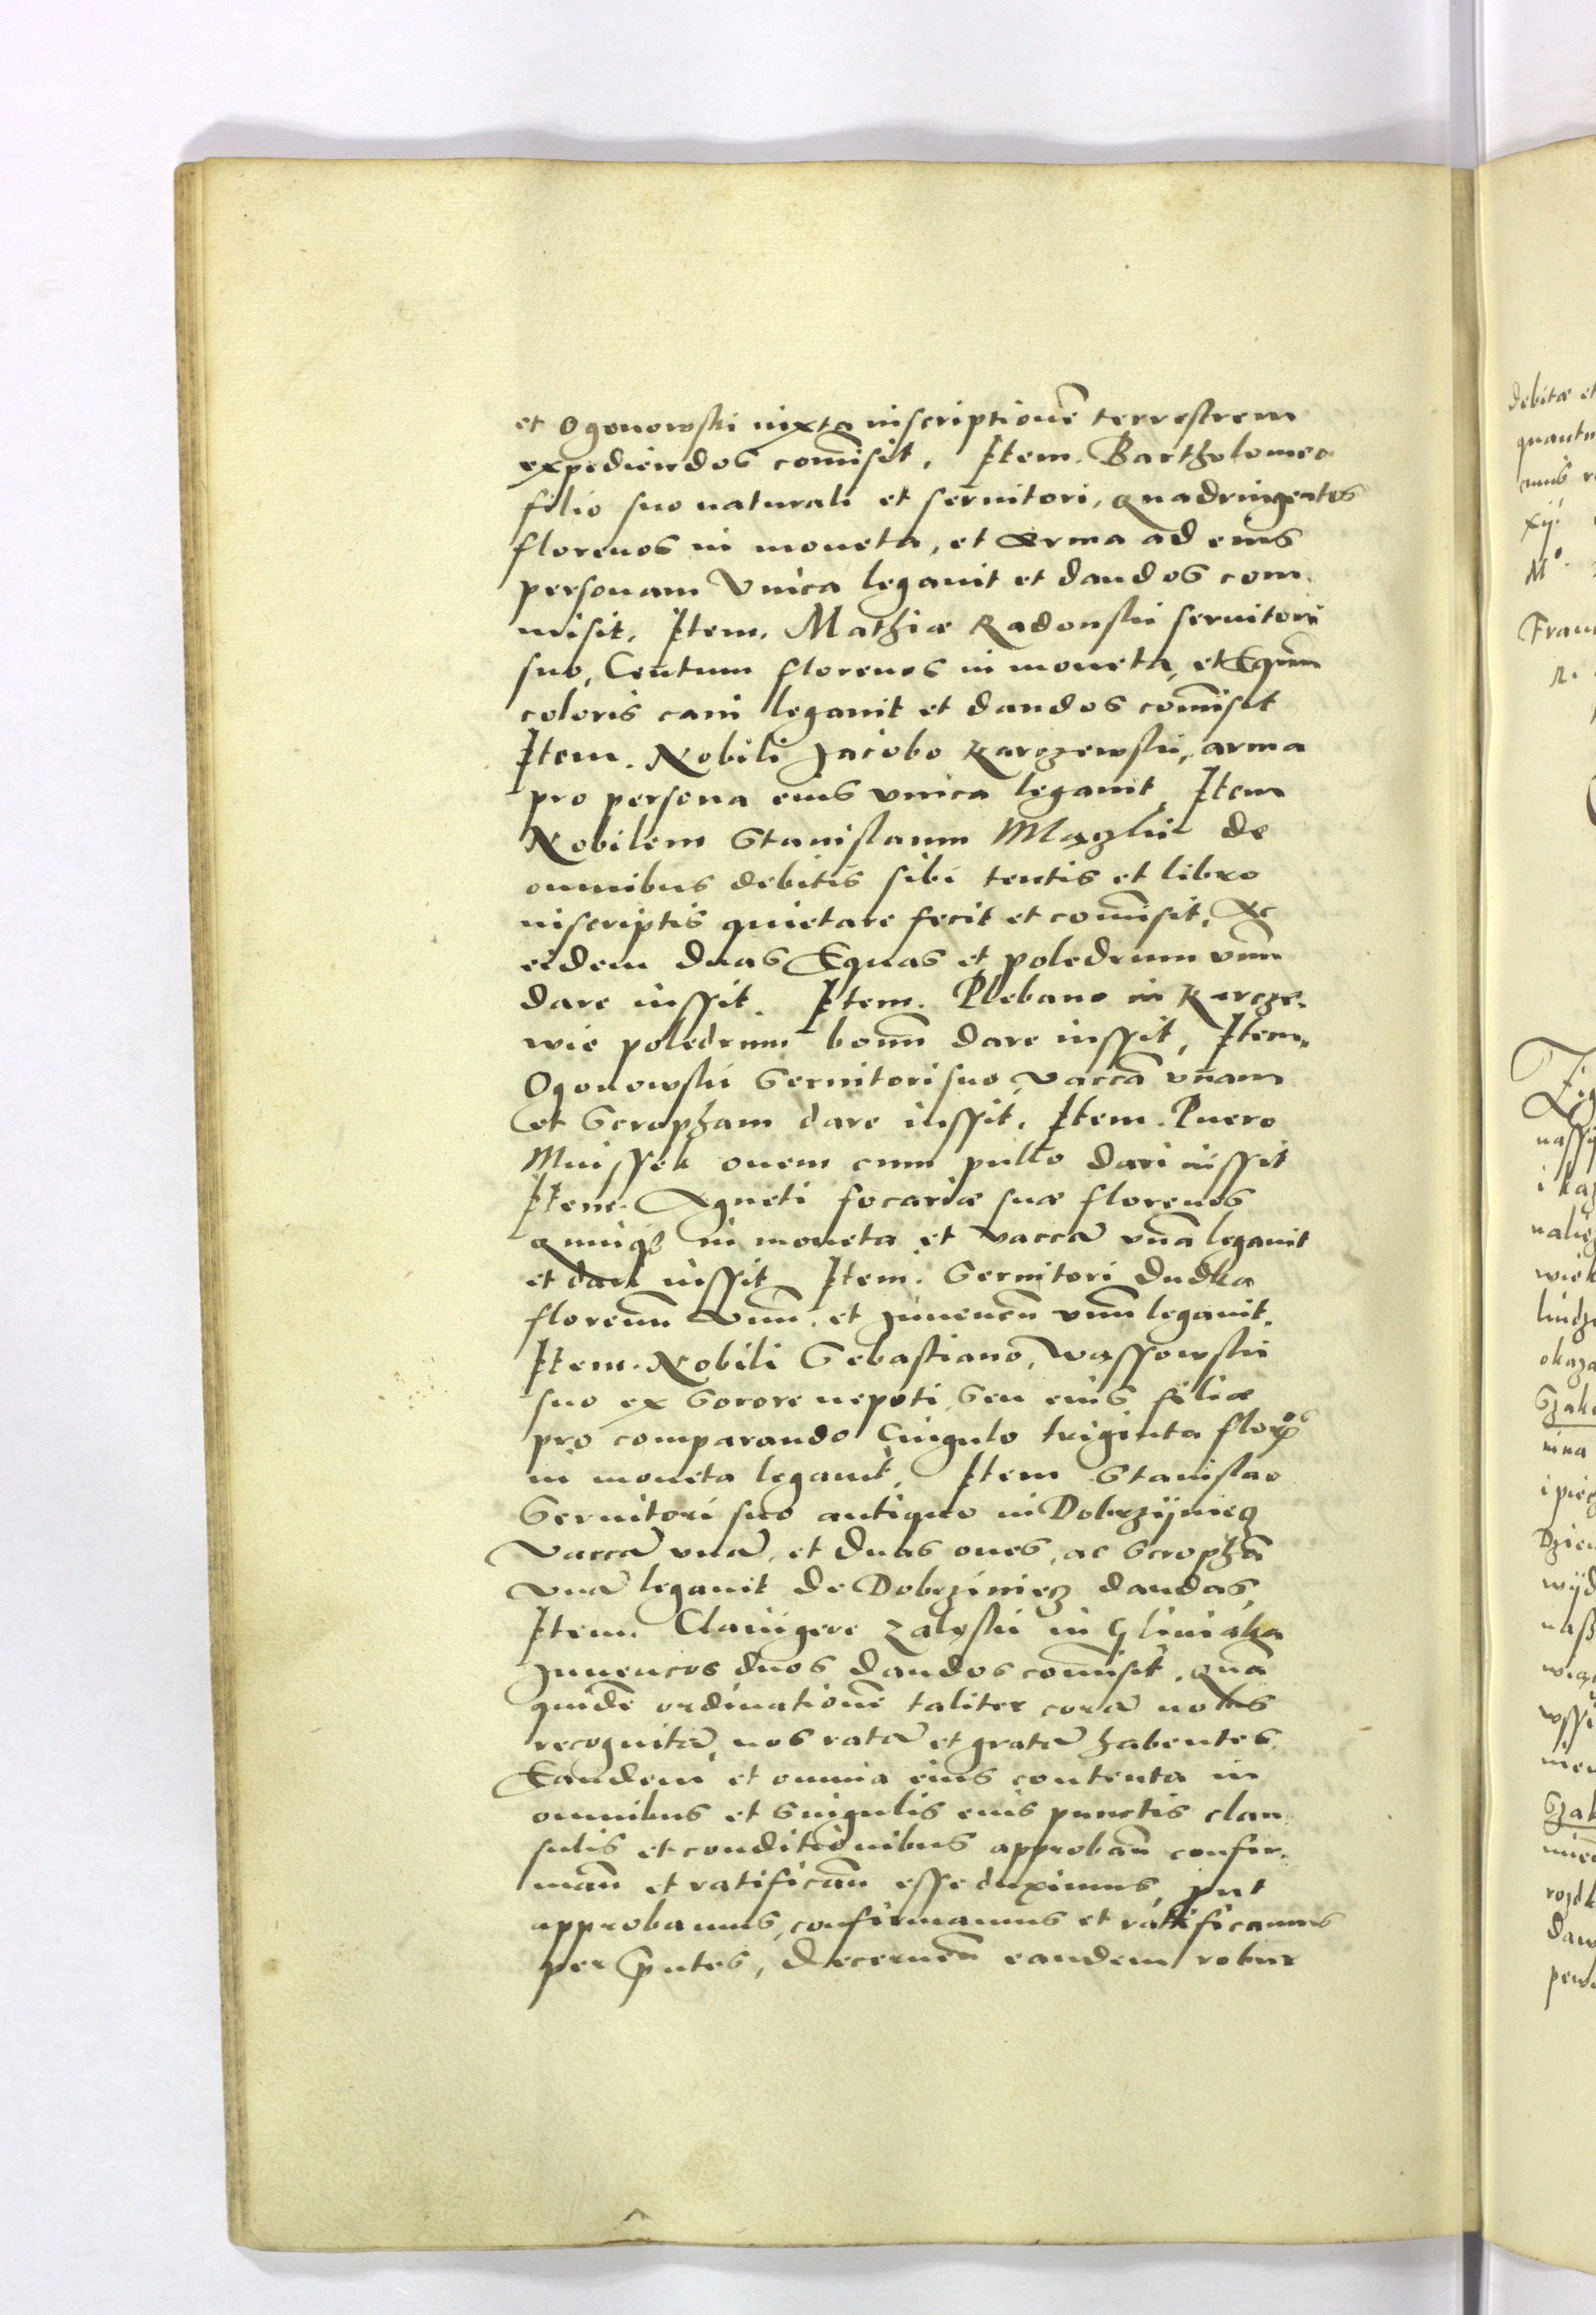 et Ogonowski iuxta inscriptionē terrestrem
expediendos com̄isit. Item. Bartholomeo
filio suo naturali et seruitori, quadringentos
florenos in moneta, et arma ad eius
personam vnica legauit et dandos com-
misit. Item. Mathiæ Radonski seruitori
suo, Centum florenos in moneta, et Equum
coloris cani legauit et dandos com̄isit
Item. Nobili Jacobo Karczewski, arma
pro persona eius vnica legauit, Item
Nobilem Stanislaum de
omnibus debitis sibi tentis et libro
inscriptis quietare fecit et com̄isit, Ac
eidem duas Equas et poledrum vnū
dare iussit. Item. Plebano in Karcze-
wie poledrum bonū dare iussit, Item.
Ogonowski Seruitori suo vaccā vnam
et Scropham dare iussit. Item. Puero
Misssek ouem cum pullo dari iussit
Item. Agneti focariæ suæ florenos
quinq₃ in moneta et vaccā vnā legauit
et dari iussit Item. Seruitori Dudka
florenū vnū. et Juuencū vnū legauit.
Item. Nobili Sebastiano, Wassowski
suo ex Sorore nepoti, Seu eius filiæ
pro comparando Cingulo triginta flor
in moneta legauit. Item Stanislao
Seruitori suo antiquo in Dobrzÿniecz
Vaccā vnā, et duas oues, ac Scrophā
vnā legauit de Dobrziniecz dandas,
Item. Clauigero Zaleski in Gliniaka
Juuencos duos dandos com̄isit. quā
quidē ordinationē taliter corā nobis
recognitā, nos ratā et gratā habentes.
Eandem et omnia eius contenta in
omnibus et Singulis eius punctis clau-
sulis et conditionibus approbañ confir-
mañ et ratificañ esse duximus, put
approbamus, confirmamus et ratificamus
per p̄ntes, Decerneñ eandem robur
debitæ et